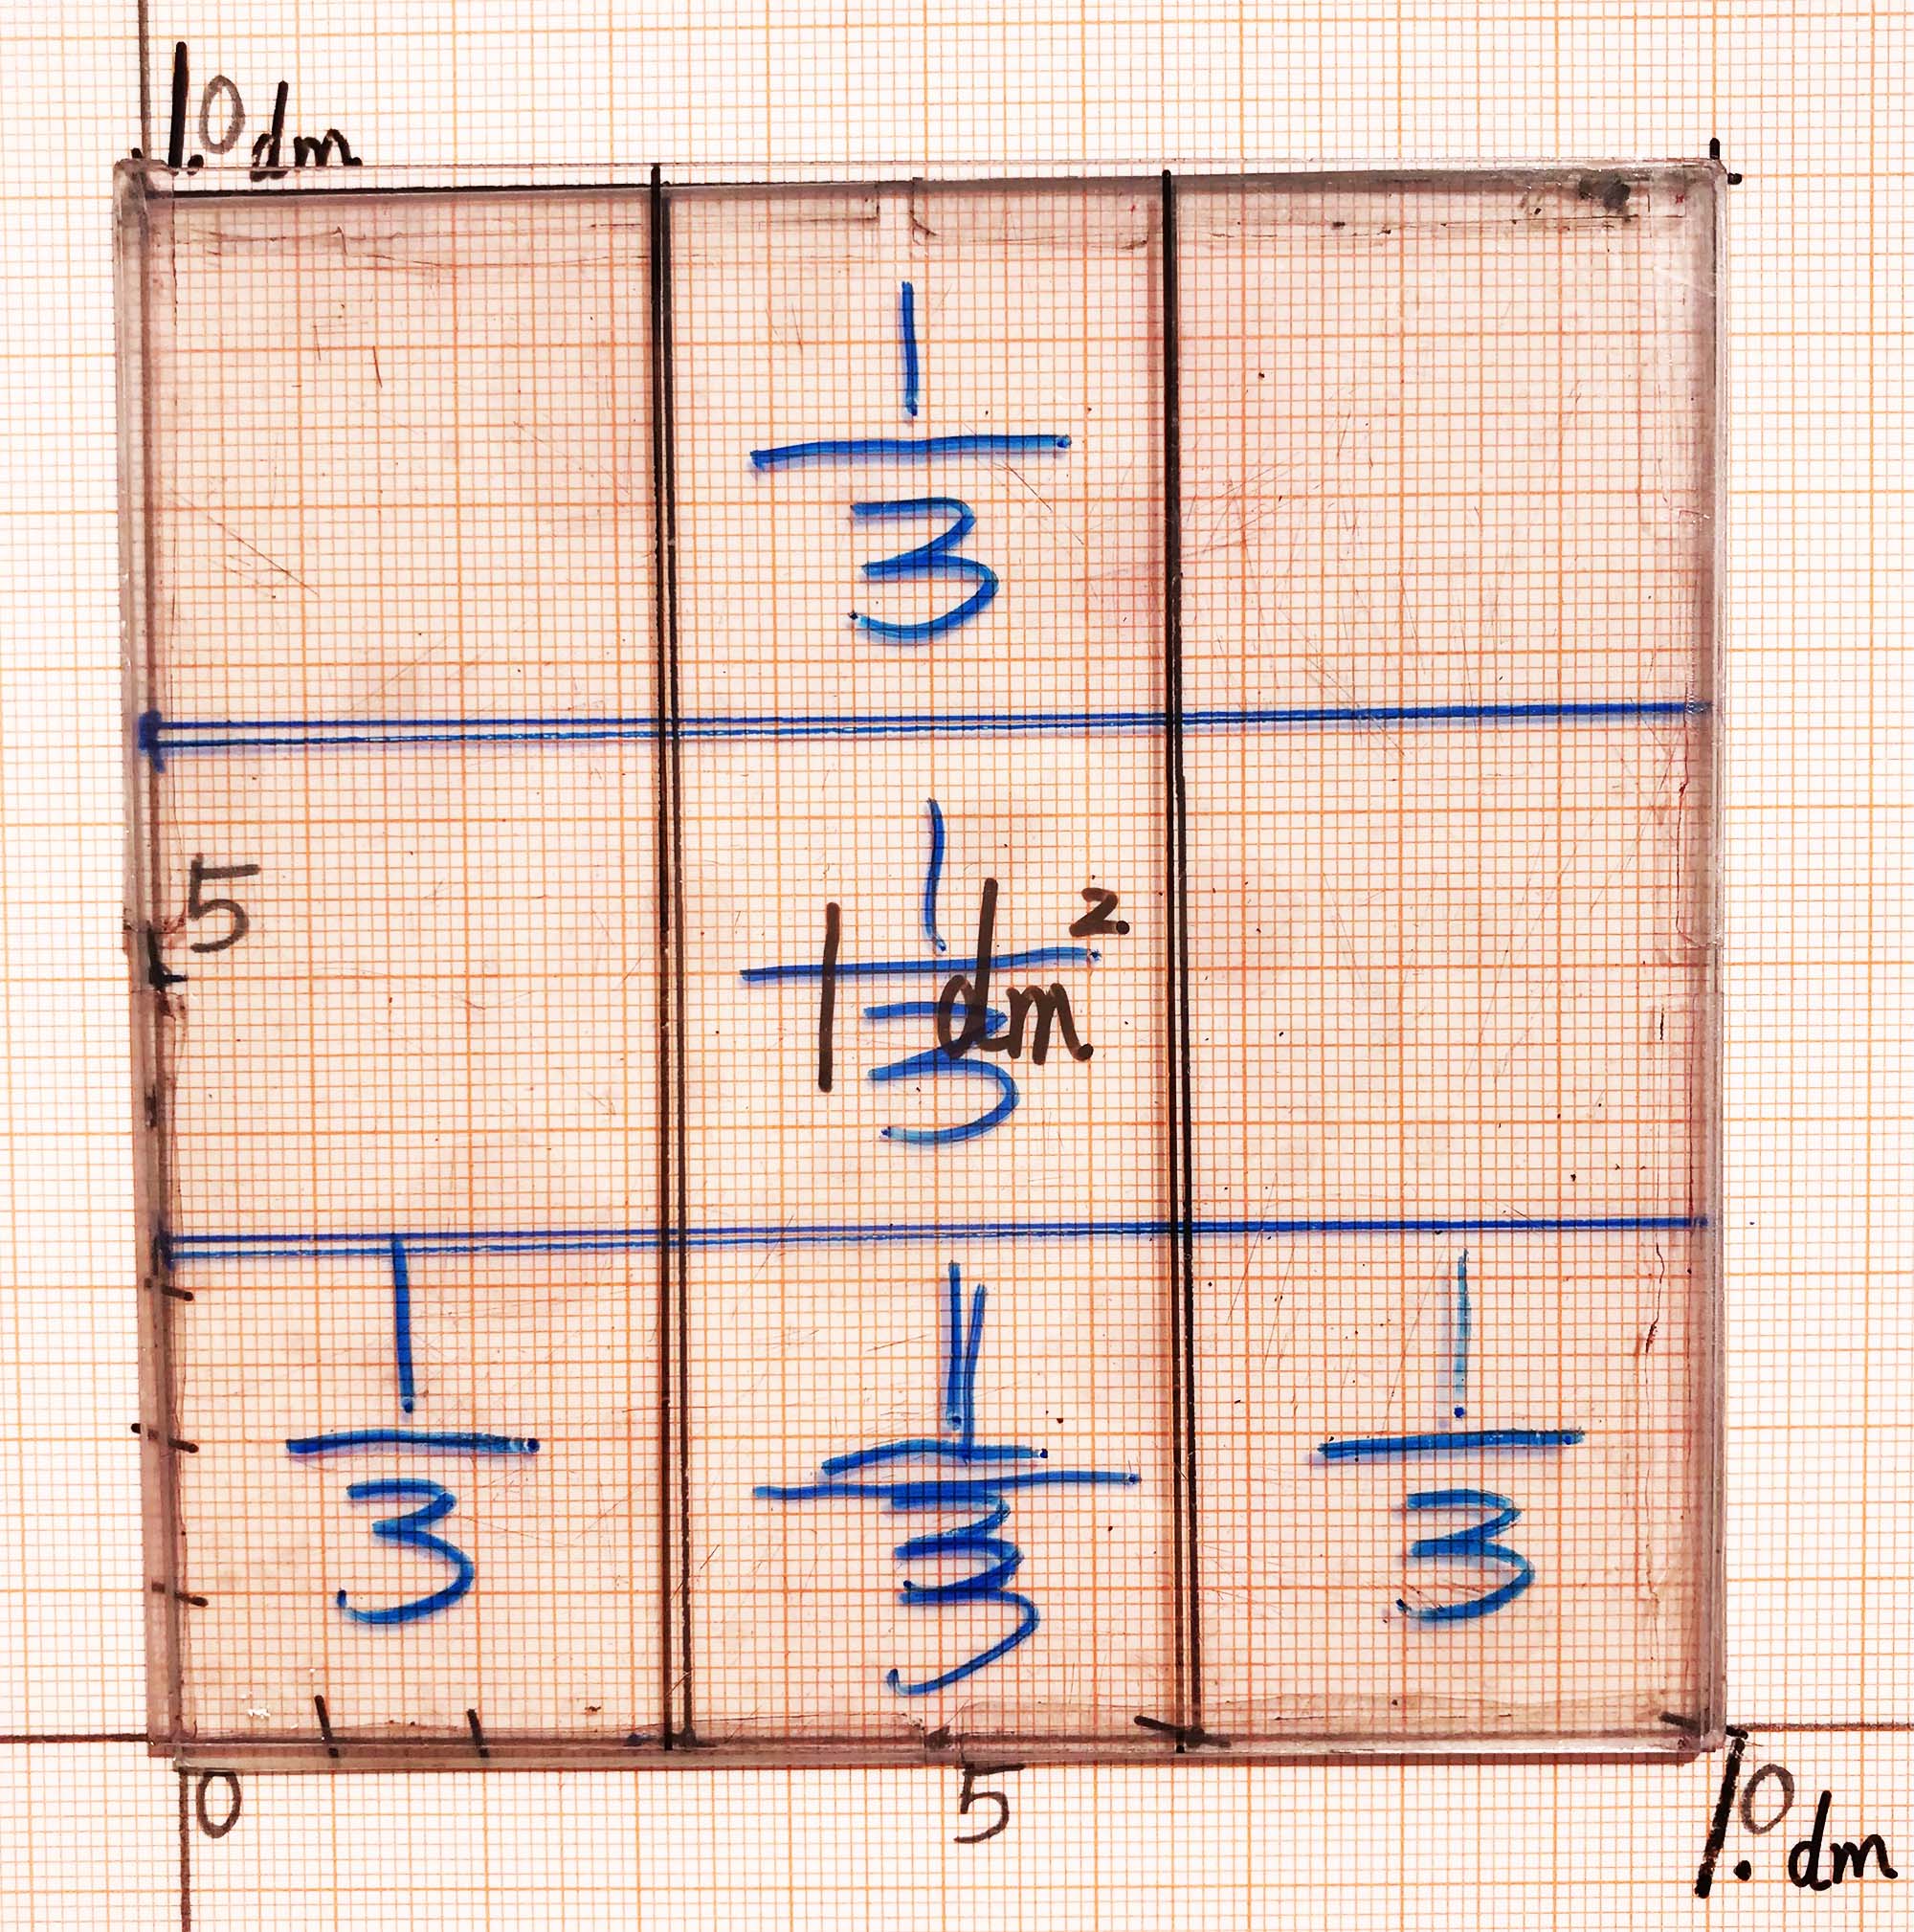 1.0 dm
1/3
5
1/3
1 dm².
1/3 1/3 1/3
1/3
0 5 1.0 dm